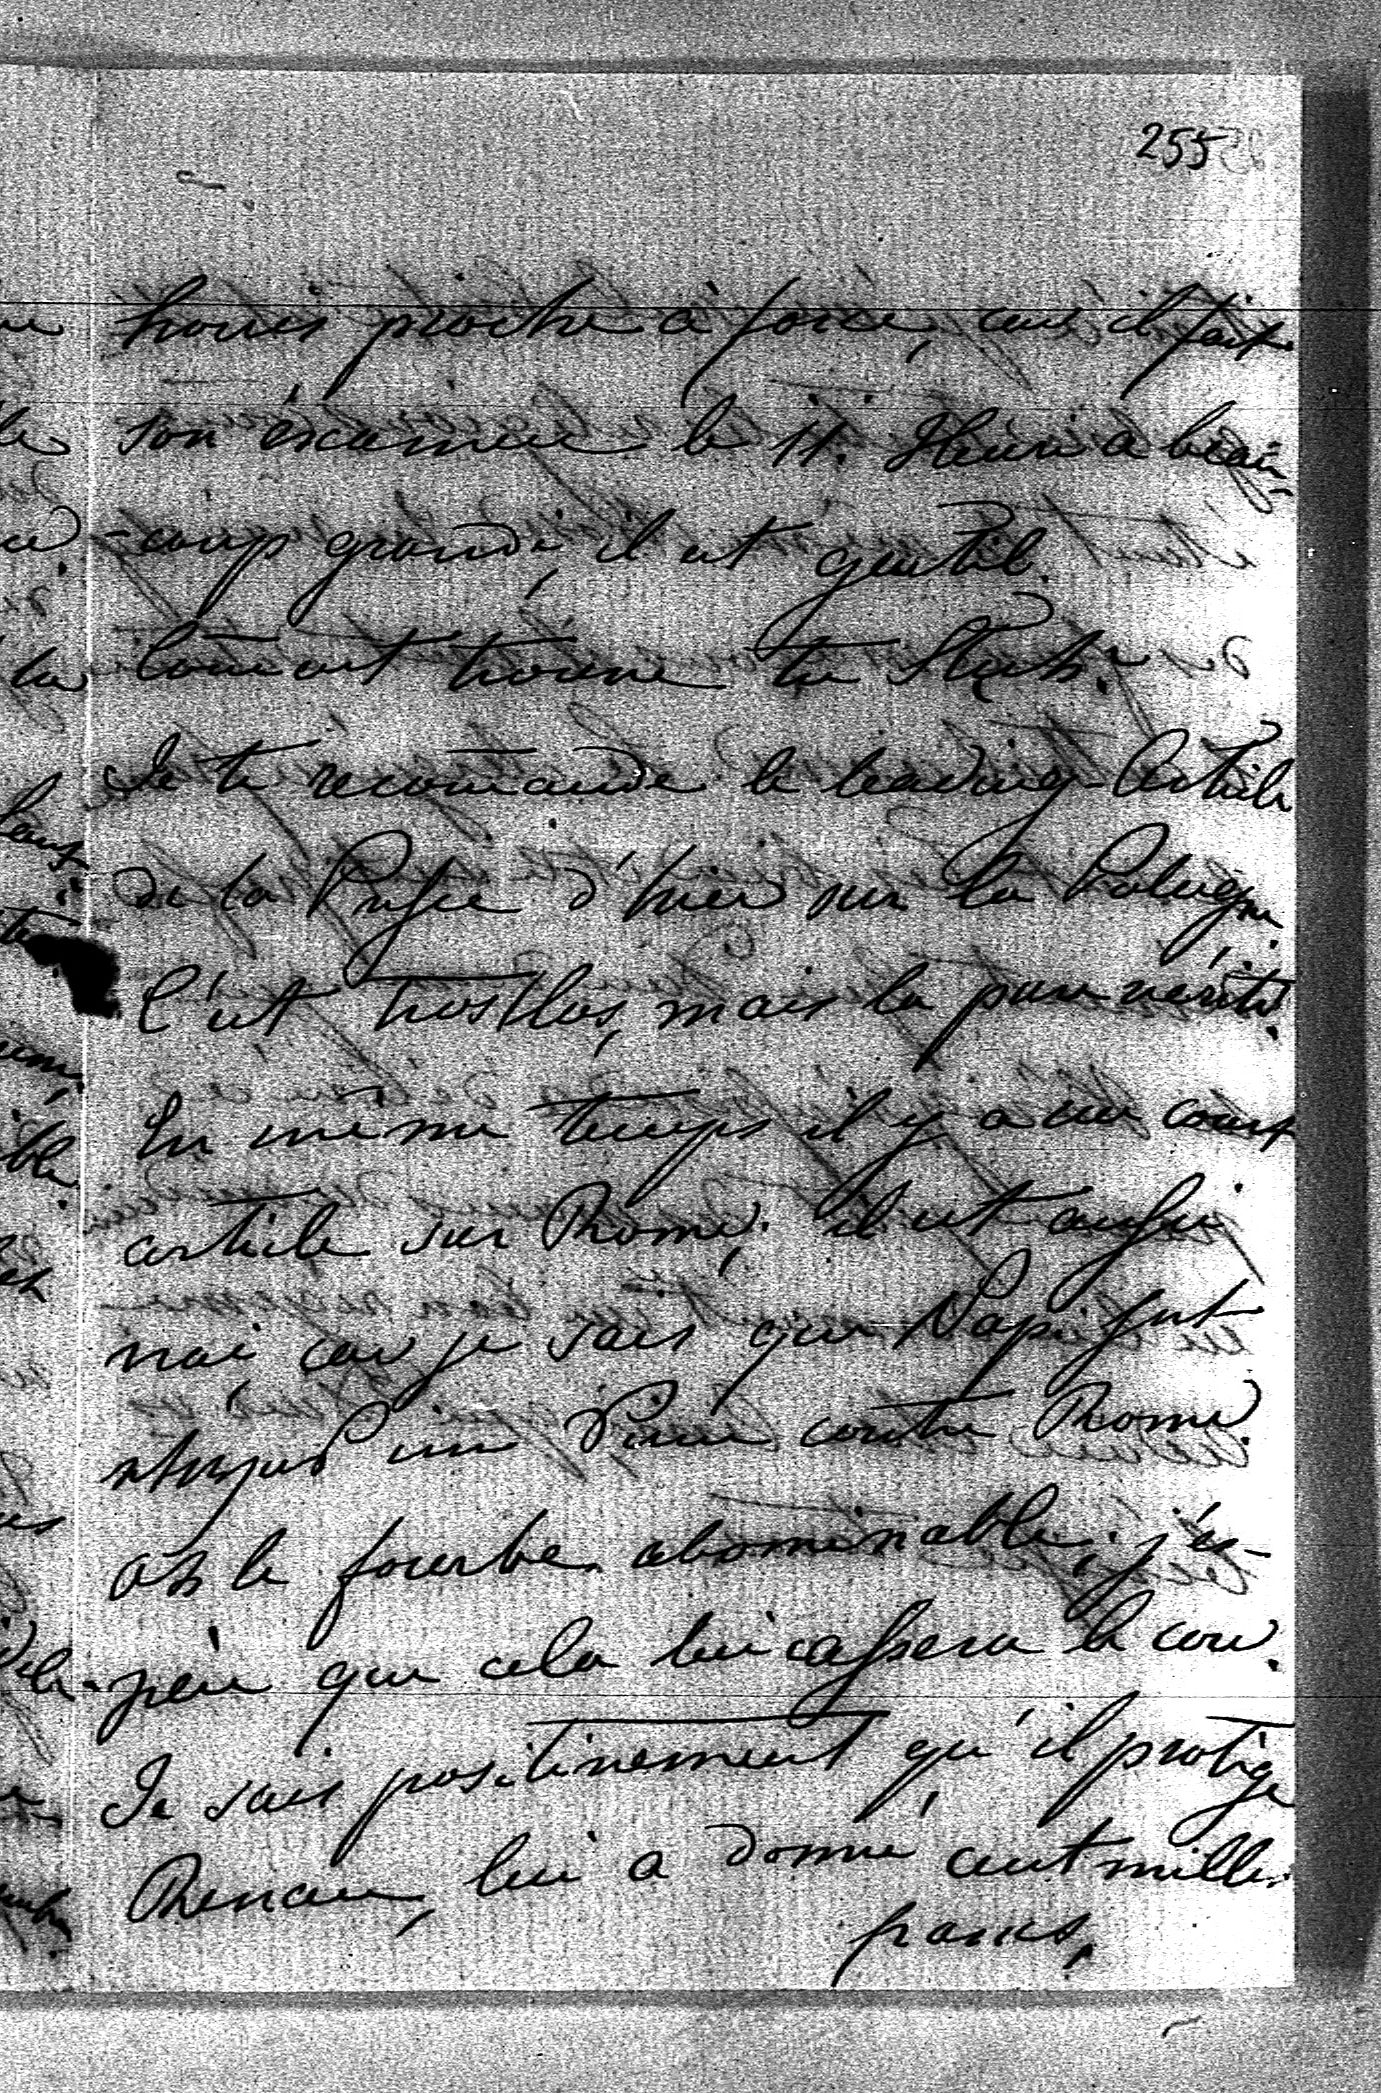 255
proche à force, car il fait
son éxamen le 11. Henri a beau-
-coup grandi, il est gentil.
Comment trouve tu
Je te recomande le leading-Article
de la Presse d'hier sur la Pologne.
C'est trostlos, mais la pure vérité.
En même temps il y a un court
article sur Rome, il est aussi
vrai, car je sais que Nap:
une contre Rome.
Oh le fourbe abominable; j'es-
père que cela lui cassera le cou.
Je sais positivement qu'il protège
Renan, lui a donné cent mille
francs,